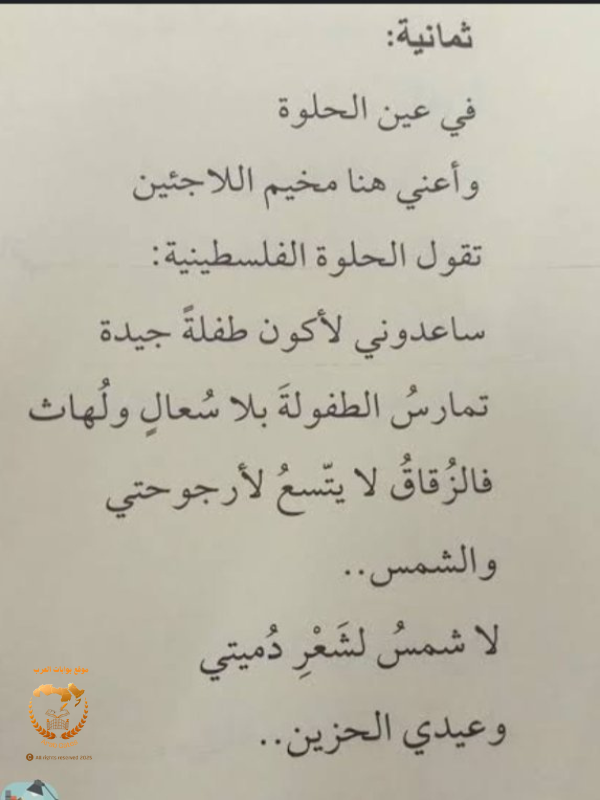 ثمانية:
في عين الحلوة
وأعني هنا مخيم اللاجئين
تقول الحلوة الفلسطينية:
ساعدوني لأكون طفلةً جيدة
تمارسُ الطفولةَ بلا سُعالٍ ولُهاث
فالزُقاقُ لا يتّسعُ لأرجوحتي
والشمس..
لا شمسُ لشَعْرِ دُميتي
وعيدي الحزين..
© All rights reserved 2025